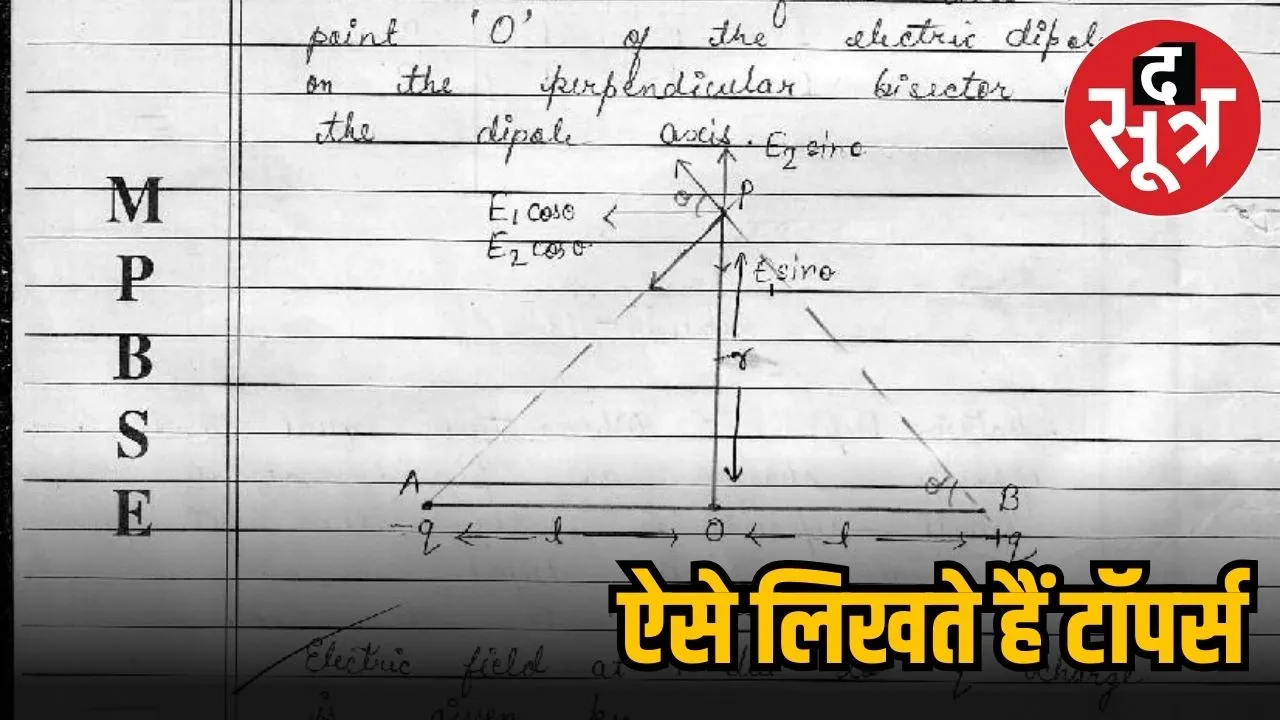 point 'O' of the electric
on the perpendicular bisector
the dipole axis.
द
सूत्र
E₂ sinθ
P
θ
E₁ cosθ
E₂ cosθ
E₁ sinθ
r
M
P
B
S
E
A
θ
B
-q
l
O
l
+q
ऐसे लिखते हैं टॉपर्स
Electric field at charge
is given by